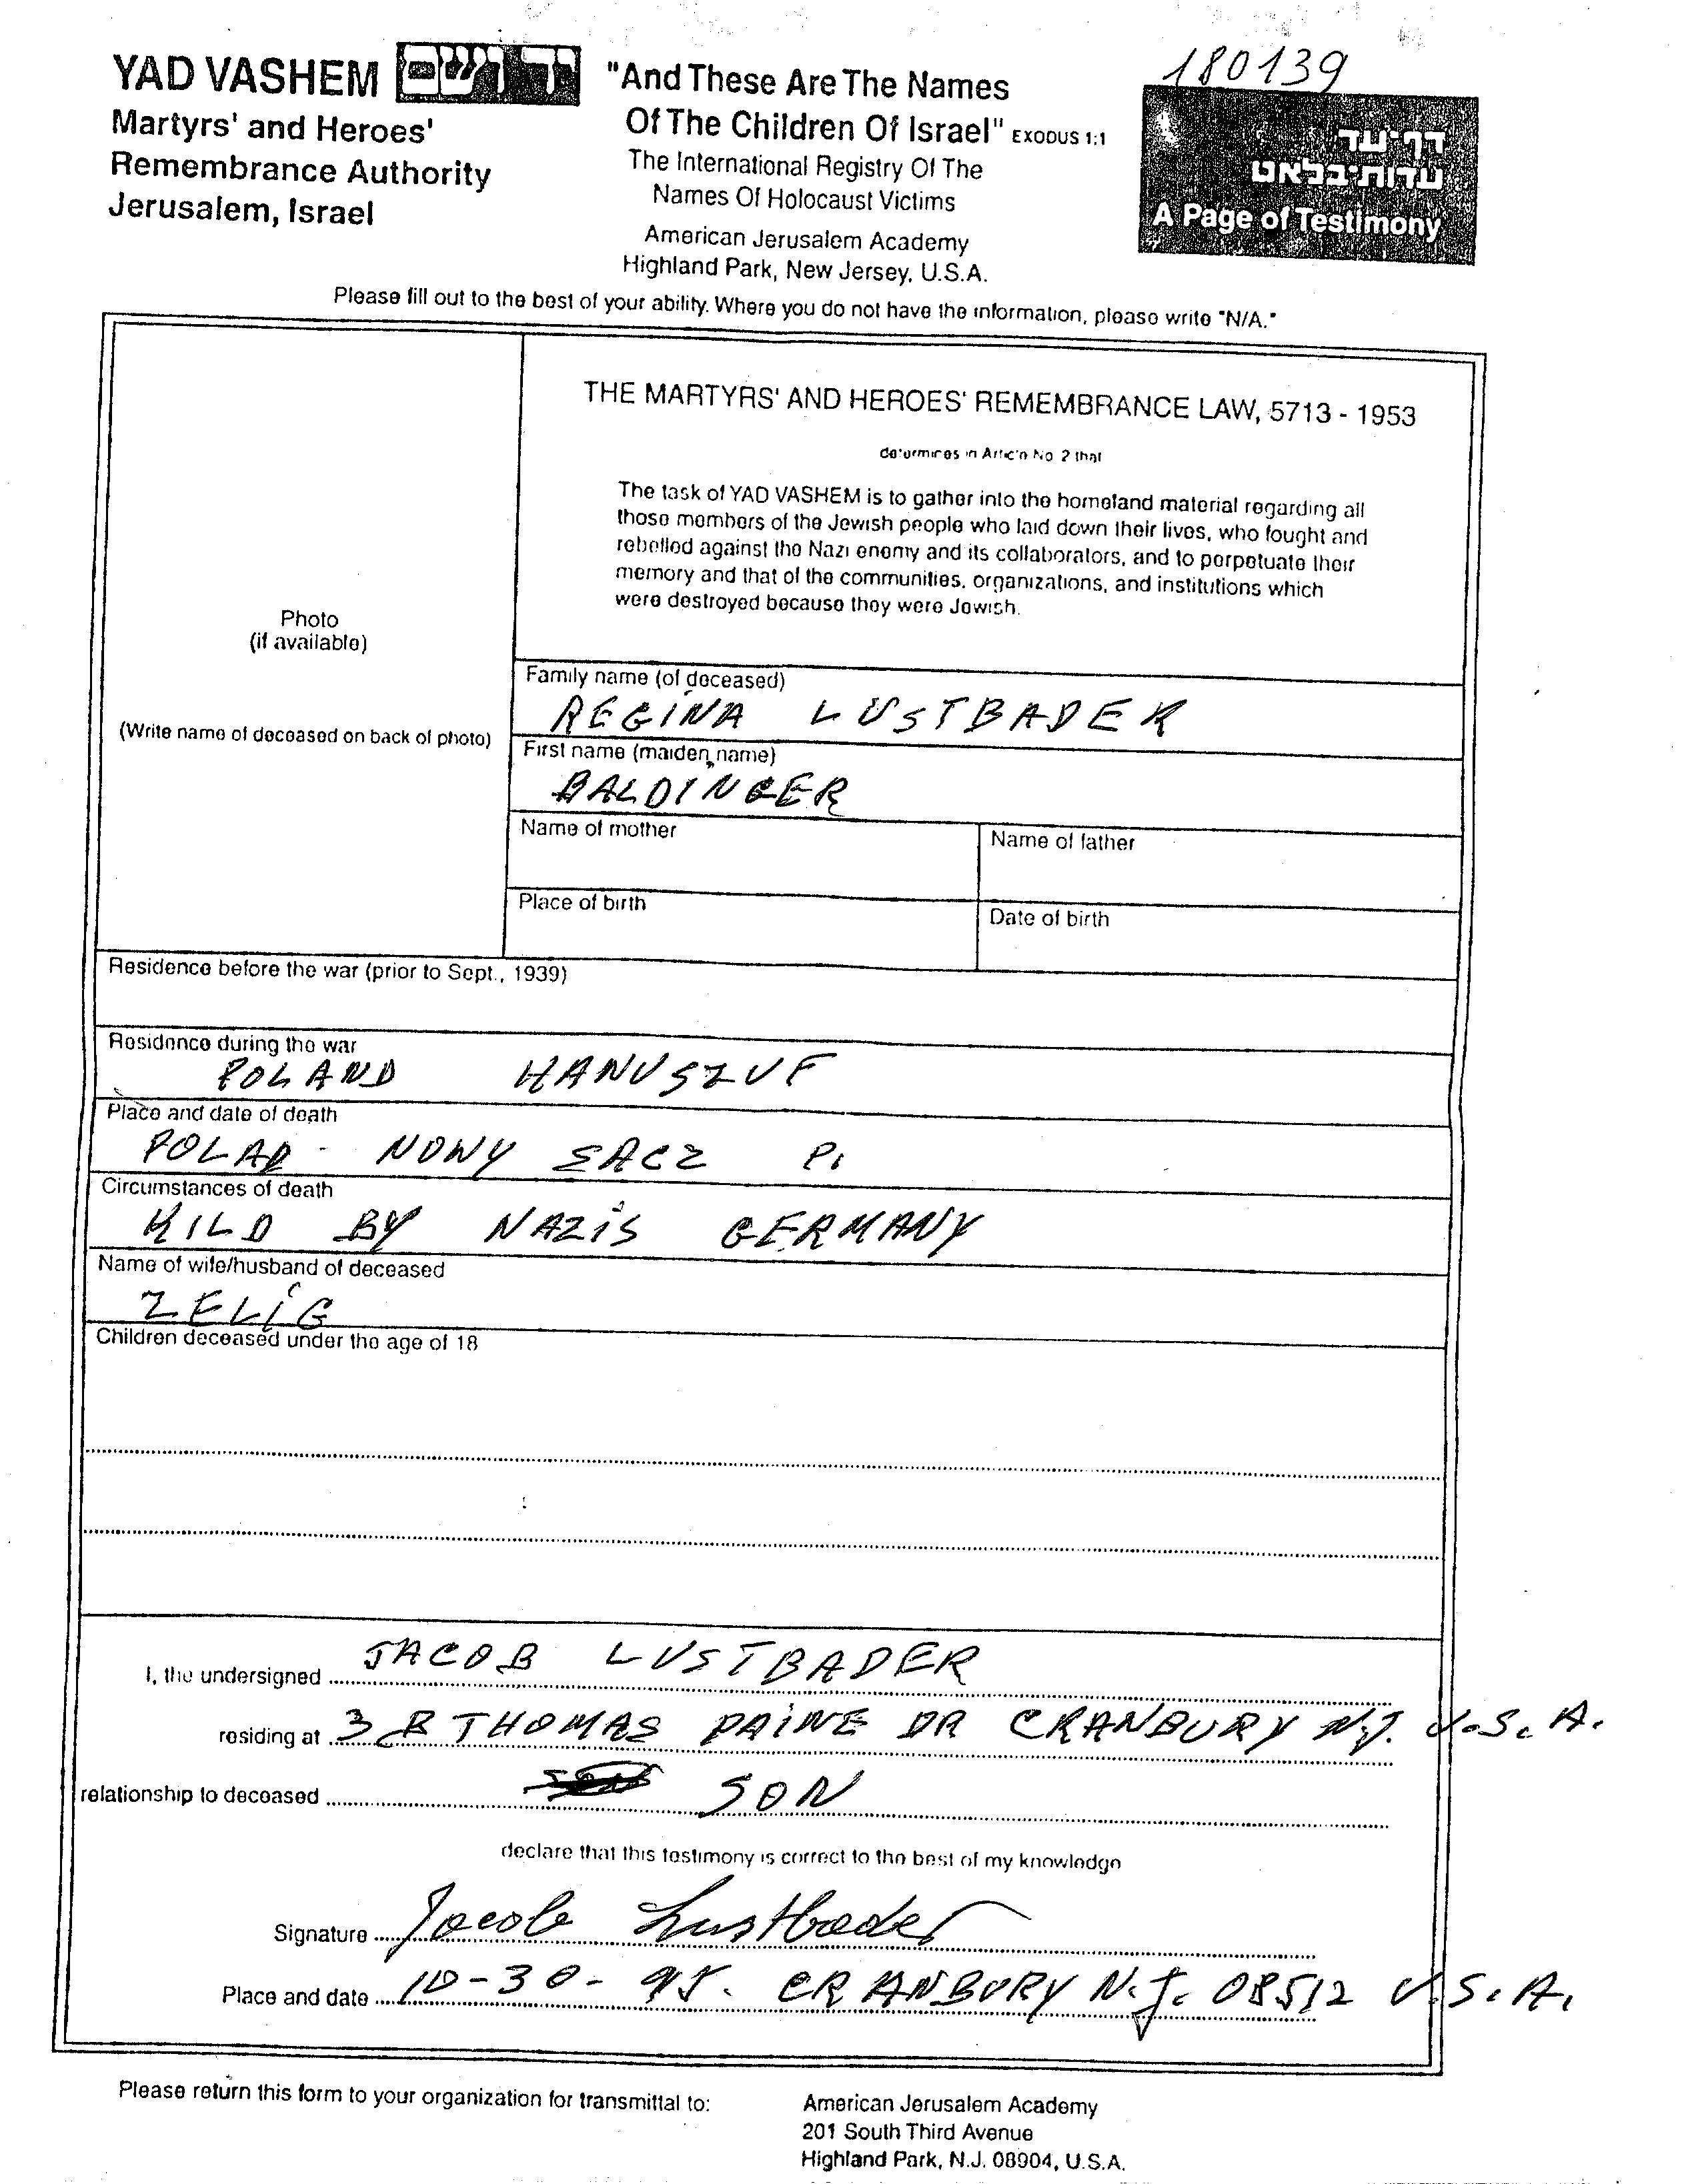 180139
YAD VASHEM יד ושם
Martyrs' and Heroes'
Remembrance Authority
Jerusalem, Israel
"And These Are The Names
Of The Children Of Israel" EXODUS 1:1
The International Registry Of The
Names Of Holocaust Victims
American Jerusalem Academy
Highland Park, New Jersey, U.S.A.
דף־עד
עדות־בלאט
A Page of Testimony
Please fill out to the best of your ability. Where you do not have the information, please write "N/A."
Photo
(if available)
(Write name of deceased on back of photo)
THE MARTYRS' AND HEROES' REMEMBRANCE LAW, 5713 - 1953
determines in Article No. 2 that
The task of YAD VASHEM is to gather into the homeland material regarding all
those members of the Jewish people who laid down their lives, who fought and
rebelled against the Nazi enemy and its collaborators, and to perpetuate their
memory and that of the communities, organizations, and institutions which
were destroyed because they were Jewish.
Family name (of deceased)
REGINA LUSTBADER
First name (maiden name)
BALDINGER
Name of mother
Name of father
Place of birth
Date of birth
Residence before the war (prior to Sept., 1939)
Residence during the war
POLAND HANUSZUF
Place and date of death
POLAD - NOWY SACZ
Circumstances of death
KILD BY NAZIS GERMANY
Name of wife/husband of deceased
ZELIG
Children deceased under the age of 18
I, the undersigned JACOB LUSTBADER
residing at 3 B THOMAS PAINE DR CRANBURY N.J. U.S.A.
relationship to deceased SON
declare that this testimony is correct to the best of my knowledge
Signature Jacob Lustbader
Place and date 10-30-95. CRANBURY N.J. 08512 U.S.A.
Please return this form to your organization for transmittal to:
American Jerusalem Academy
201 South Third Avenue
Highland Park, N.J. 08904, U.S.A.